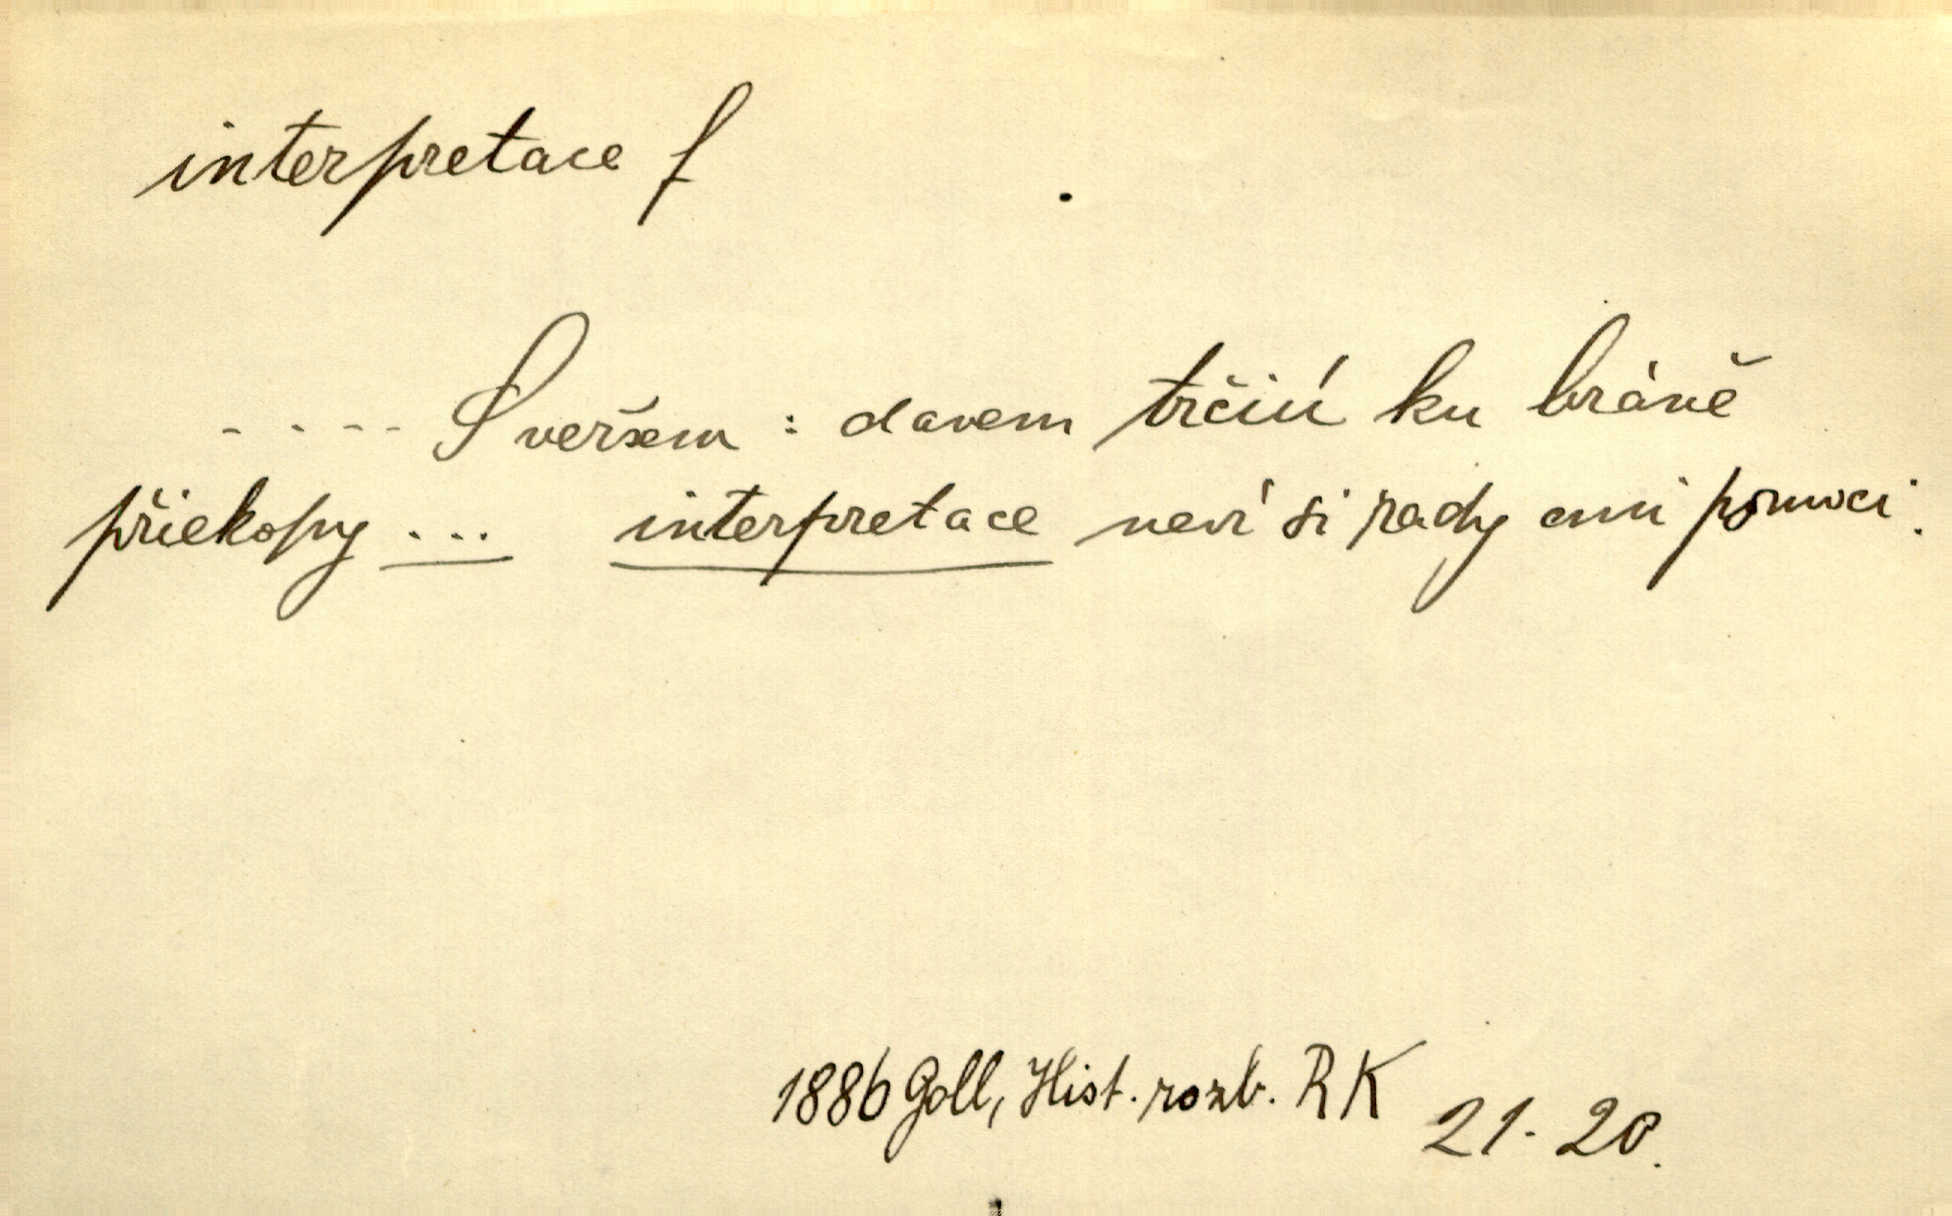 interpretace f
- - - - S veršem : davem trčiú ku bráně
přiekopy ... interpretace neví si rady ani pomoci.
1886 Goll, Hist. rozb. RK 21. 20.